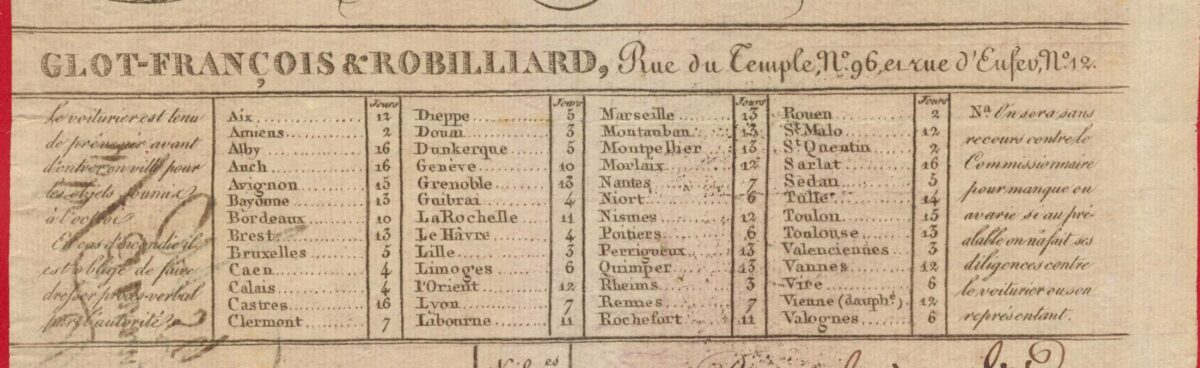 GLOT-FRANÇOIS & ROBILLIARD, Rue du Temple, N.º 96, et rue d'Enfer, N.º 12.
Le voiturier est tenu
de prévenir avant
d'entrer en ville pour
les objets soumis
à l'octroi
En cas d'incendie il
est obligé de faire
dresser procès-verbal
par l'autorité
Jours
Aix 12
Amiens 2
Alby 16
Auch 16
Avignon 15
Bayonne 13
Bordeaux 10
Brest 13
Bruxelles 5
Caen 4
Calais 4
Castres 16
Clermont 7
Jours
Dieppe 5
Douai 3
Dunkerque 5
Genève 10
Grenoble 13
Guibrai 4
La Rochelle 11
Le Hâvre 4
Lille 3
Limoges 6
l'Orient 12
Lyon 7
Libourne 11
Jours
Marseille 13
Montauban 13
Montpellier 13
Morlaix 12
Nantes 7
Niort 6
Nismes 12
Poitiers 6
Perrigueux 13
Quimper 13
Rheims 3
Rennes 7
Rochefort 11
Jours
Rouen 2
St. Malo 12
St. Quentin 2
Sarlat 16
Sedan 5
Tulle 14
Toulon 15
Toulouse 13
Valenciennes 3
Vannes 12
Vire 6
Vienne (dauphé.) 12
Valognes 6
Na. On sera sans
recours contre le
Commissionnaire
pour manque ou
avarie si au pré-
alable on n'a fait ses
diligences contre
le voiturier ou son
représentant.